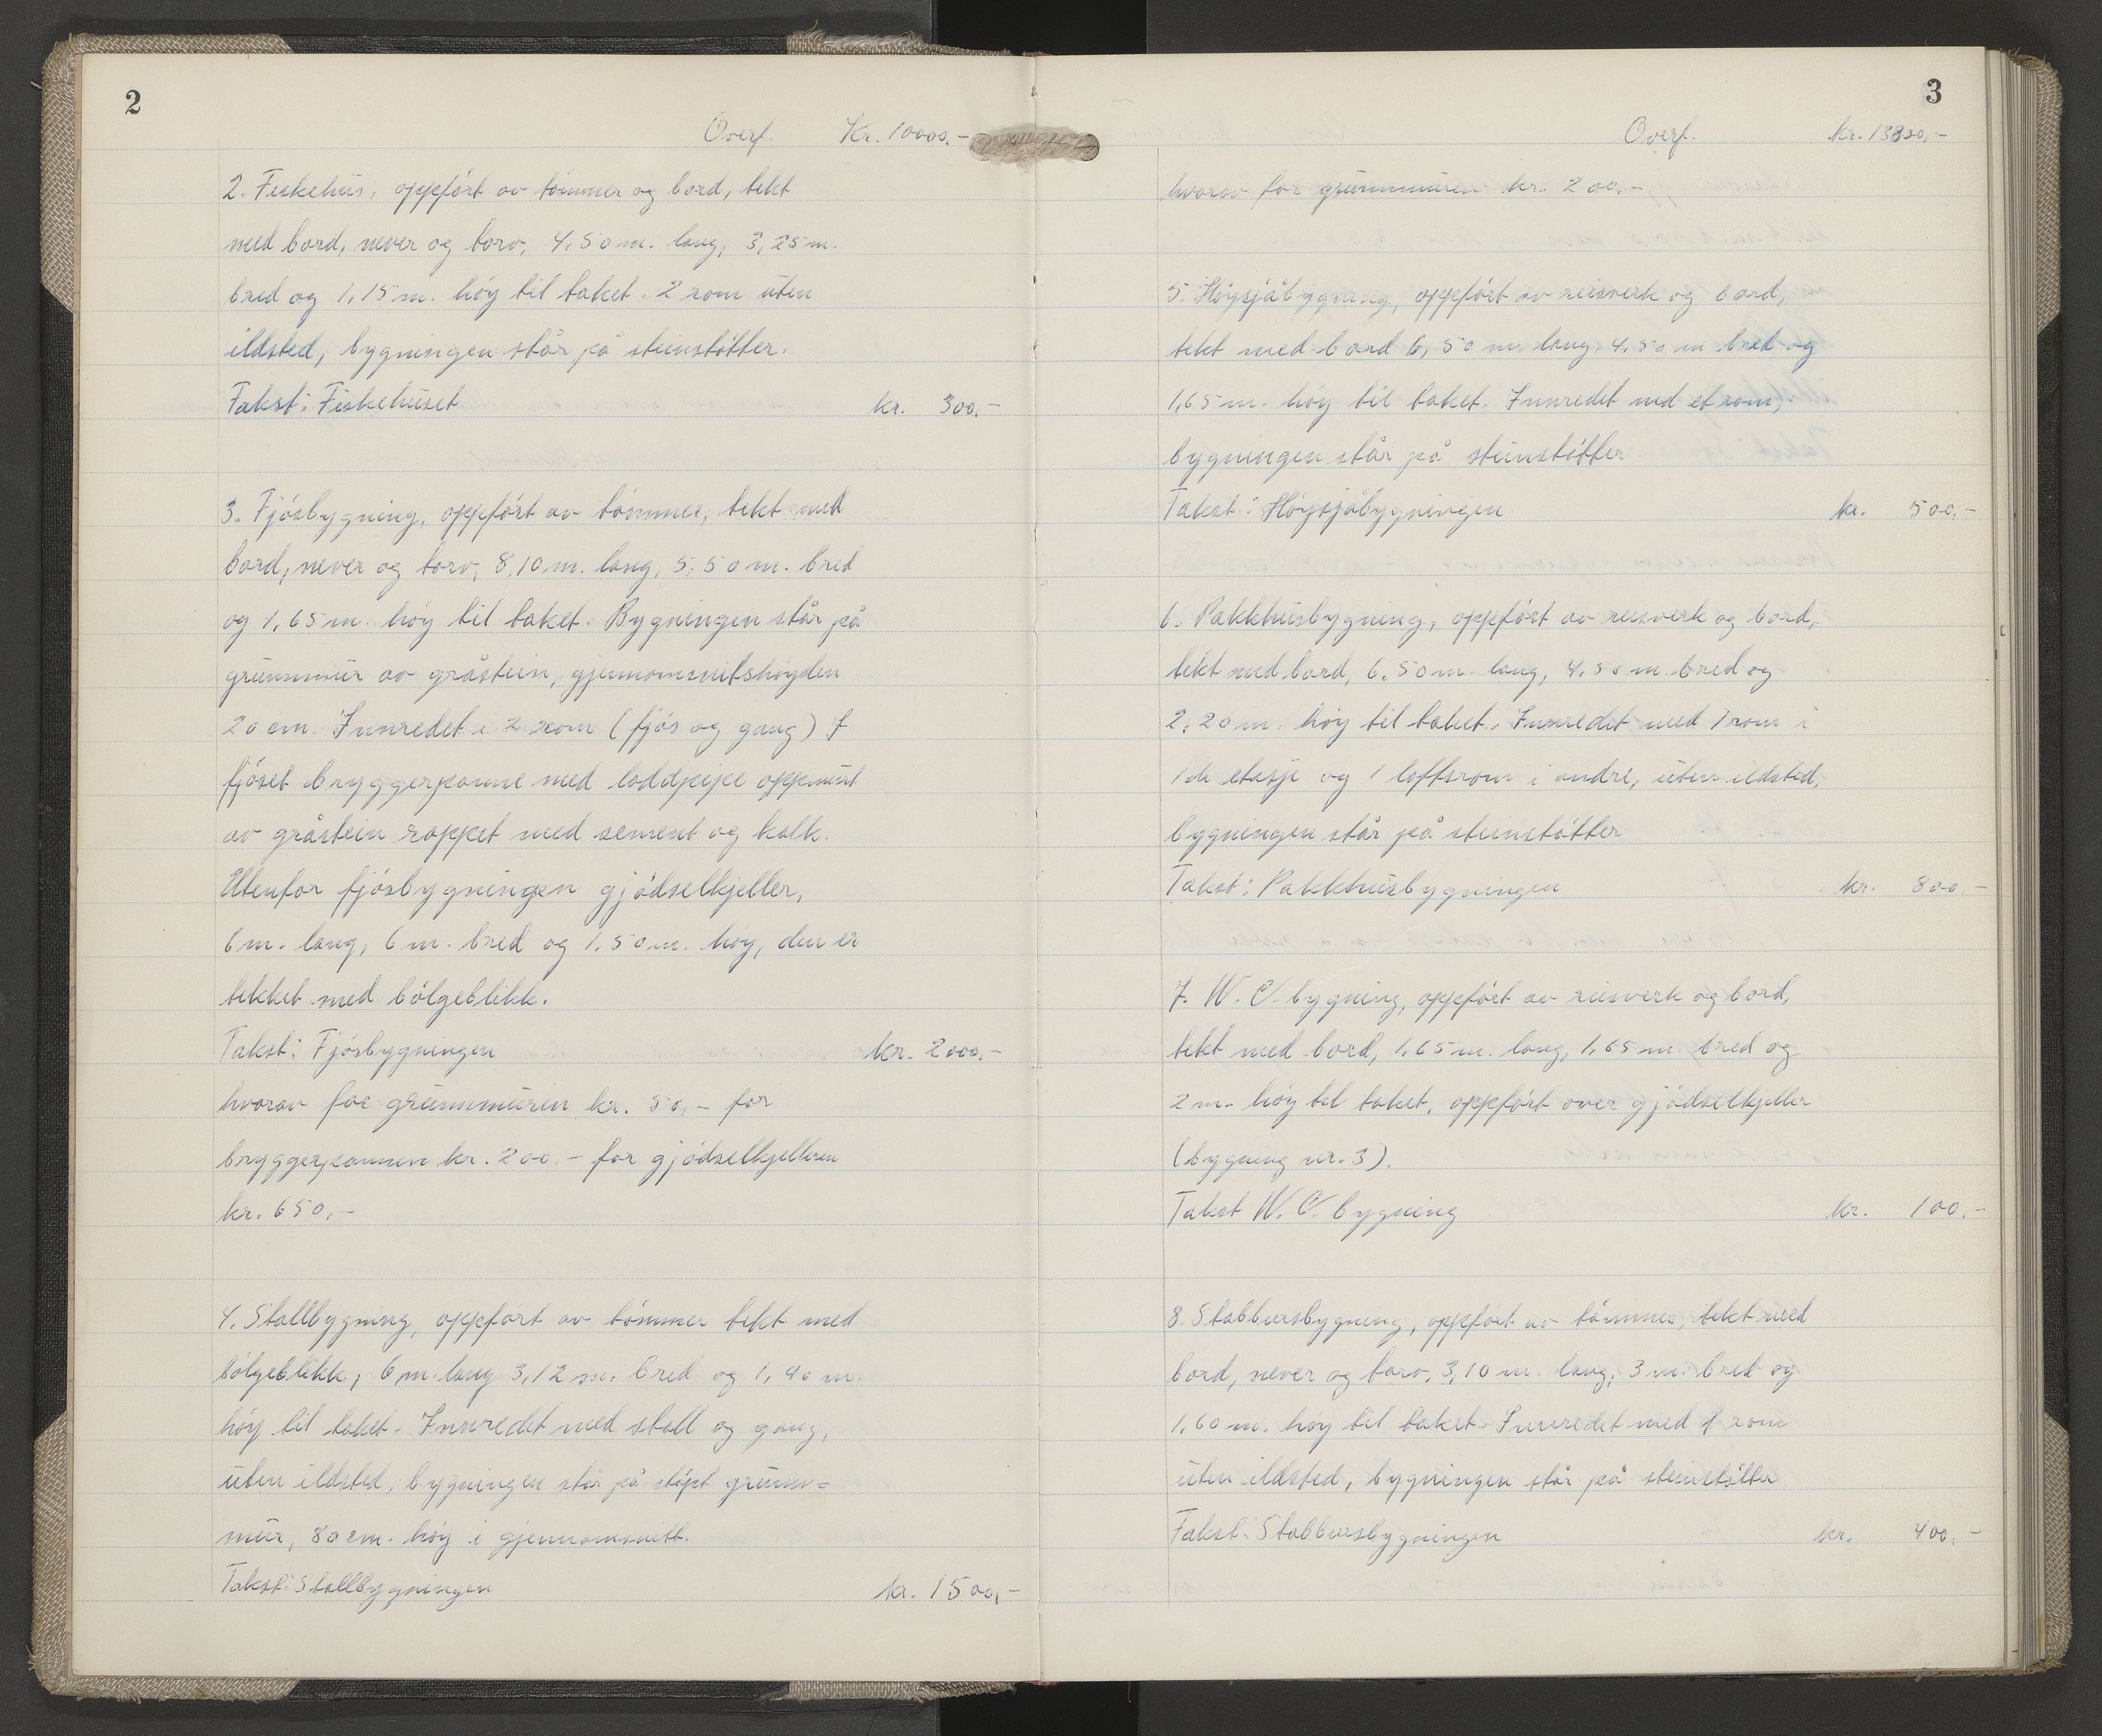 2
Overf. Kr. 10000.-
2. Fiskehus, oppført av tømmer og bord, tekt
med bord, never og torv, 4,50 m. lang, 3,25 m.
bred og 1,15 m. høy til taket. 2 rom uten
ildsted, bygningen står på steinstøtter.
Takst: Fiskehuset kr. 300.-
3. Fjøsbygning, oppført av tømmer, tekt med
bord, never og torv, 8,10 m. lang, 5,50 m. bred
og 1,65 m. høy til taket. Bygningen står på
grunnmur av gråstein, gjennomsnitshøyden
20 cm. Innredet i 2 rom (fjøs og gang) I
fjøset bryggerpanne med loddpipe oppmurt
av gråstein rappet med sement og kalk.
Utenfor fjøsbygningen gjødselkjeller,
6 m. lang, 6 m. bred og 1.50 m. høy, den er
tekket med bølgeblikk.
Takst: Fjøsbygningen kr. 2000.-
hvorav for grunnmuren kr. 50,- for
bryggerpannen kr. 200.- for gjødselkjelleren
kr. 650,-
4. Stallbygning, oppført av tømmer tekt med
bølgeblikk, 6 m. lang 3,12 m. bred og 1,90 m.
høy til taket. Innredet med stall og gang,
uten ildsted, bygningen står på støpt grunn=
mur, 80 cm. høy i gjennomsnitt.
Takst: Stallbygningen kr. 1500,-
3
Overf. kr. 13800,-
hvorav for grunnmuren kr. 200,-
5. Høysjåbygning, oppført av reisverk og bord,
tekt med bord 6,50 m. lang, 4,50 m. bred og
1,65 m. høy til taket. Innredet med et rom,
bygningen står på steinstøtter
Takst: Høysjåbygningen kr. 500,-
6. Pakkhusbygning, oppført av reisverk og bord,
tekt med bord, 6,50 m. lang, 4,50 m. bred og
2,20 m. høy til taket. Innredet med 1 rom i
1de etasje og 1 loftsrom i andre, uten ildsted,
bygningen står på steinstøtter
Takst: Pakkhusbygningen kr. 800.-
7. W. C. bygning, oppført av reisverk og bord,
tekt med bord, 1,65 m. lang, 1,65 m. bred og
2 m. høy til taket, oppført over gjødselkjeller
(bygning nr. 3).
Takst W. C. bygning kr. 100.-
8. Stabbursbygning, oppført av tømmer, tekt med
bord, never og torv, 3,10 m. lang, 3 m. bred og
1,60 m. høy til taket. Innredet med 1 rom
uten ildsted, bygningen står på steinstøtter
Takst: Stabbursbygningen kr. 400,-